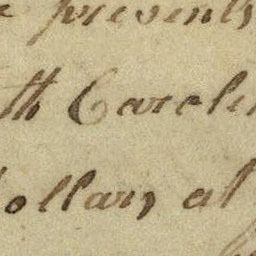 e presents
th Carolin
dollars at